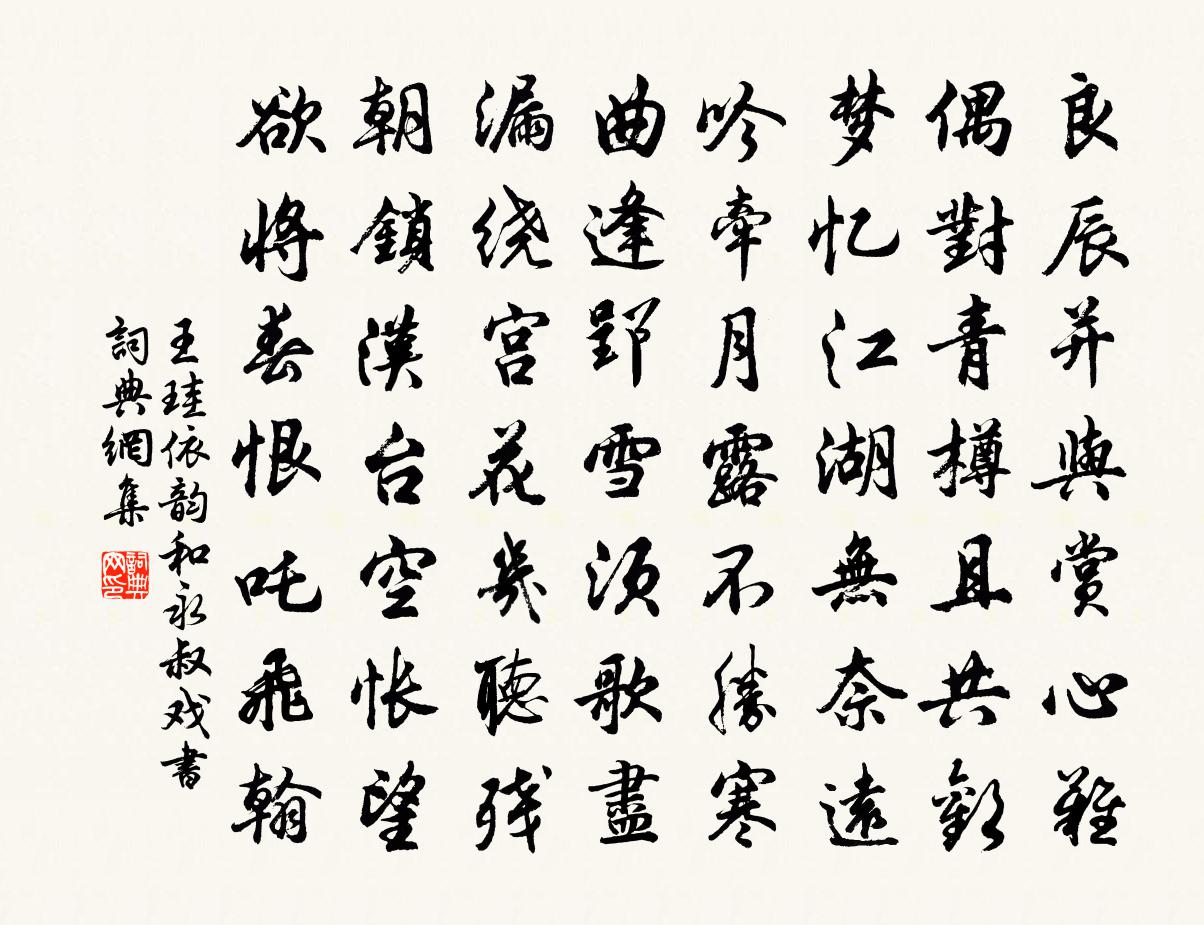 良辰并與賞心難
偶對青樽且共歡
梦忆江湖無奈遠
吟牵月露不勝寒
曲逢郢雪须歌盡
漏绕宫花幾聽残
朝鎖漢台空怅望
欲将春恨吒飛翰
王珪依韵和永叔戏書
詞典網集
詞典网印